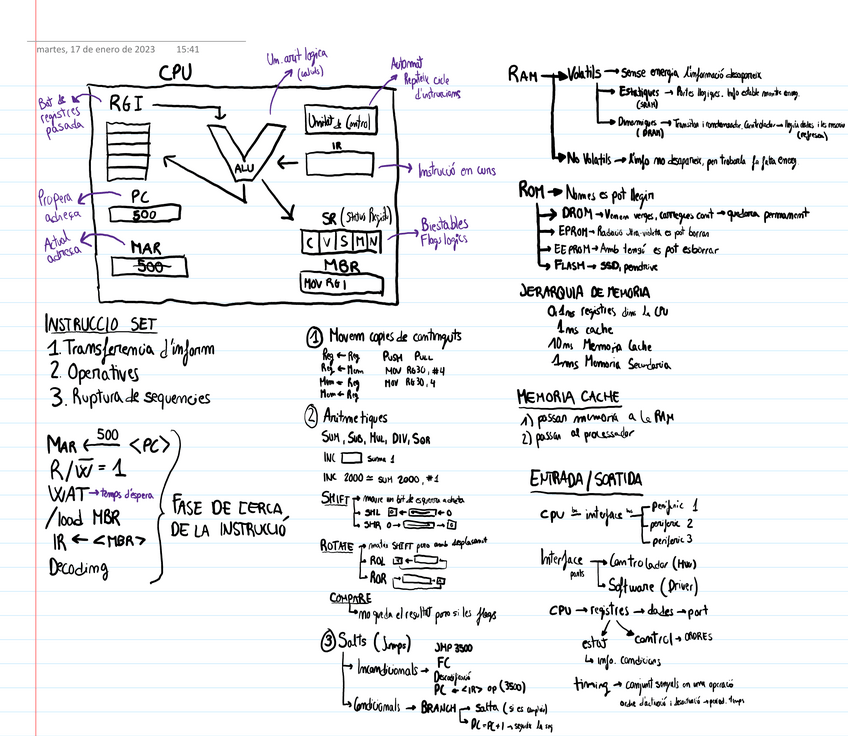 martes, 17 de enero de 2023 15:41
CPU
Un. arit logica
(calculs)
Automat
Repiteix cicle
d'instruccions
Bat de
registres
pasada
RGI
Unidat de Control
ALU
IR
Instrucció en curs
Propera
adreça
PC
500
Actual
adresa
MAR
500
SR (Status Regist)
C V S M N
Biestables
Flags logics
MBR
MOV RG1
INSTRUCCIO SET
1. Transferencia d'inform
2. Operatives
3. Ruptura de sequencies
MAR ← 500 <PC>
R/W = 1
WAT → temps d'espera
/load MBR
IR ← <MBR>
Decoding
FASE DE CERCA
DE LA INSTRUCCIÓ
1 Movem copies de continguts
Reg ← Reg PUSH PULL
Reg ← Mem MOV RG30, #4
Mem ← Reg MOV RG30, 4
Mem ← Reg
2 Aritmetiques
SUM, SUB, MUL, DIV, SOR
INC suma 1
INC 2000 = SUM 2000, #1
SHIFT → moure un bit de esquerra a dreta
→ SHL ← 0
→ SHR 0 →
ROTATE → SHIFT pero amb desplaçament
→ ROL
→ ROR
COMPARE
→ no queda el resultat pero si les flags
3 Salts (Jumps) JMP 3500
→ Incondicionals → FC
Decodificació
PC ← <IR> op (3500)
→ Condicionals → BRANCH → Salta (si es compleix)
→ PC = PC+1 → seguix la seq
RAM → Volatils → Sense energia l'informació desapareix
→ Estatiques → Portes llogiques. Info estable mentre energ.
(SRAM)
→ Dinamiques → Transistor i condensador. Controlador → llegix dades i les
(DRAM) (refresca)
→ No Volatils → L'info no desapareix, per trobarla fa falta energ.
ROM → Nomes es pot llegir
→ DROM → Venen verges, carregues cont → quedara permanent
→ EPROM → Radiació ultra-violeta es pot borrar
→ EEPROM → Amb tensió es pot esborrar
→ FLASH → SSD, pendrive
JERARQUIA DE MEMORIA
0,1ns registres dins la CPU
1ns cache
10ns Memoria Cache
1ms Memoria Secundaria
MEMORIA CACHE
1) passar memoria a la RAM
2) passar al processador
ENTRADA/SORTIDA
CPU ⇆ interface ⇆ Periferic 1
periferic 2
periferic 3
Interface → Controlador (HW)
parts → Software (Driver)
CPU → registres → dades → port
estat control → ORDRES
↳ info. condicions
timing → conjunt senyals en una operació
ordre d'activació i desactivació → period. temps